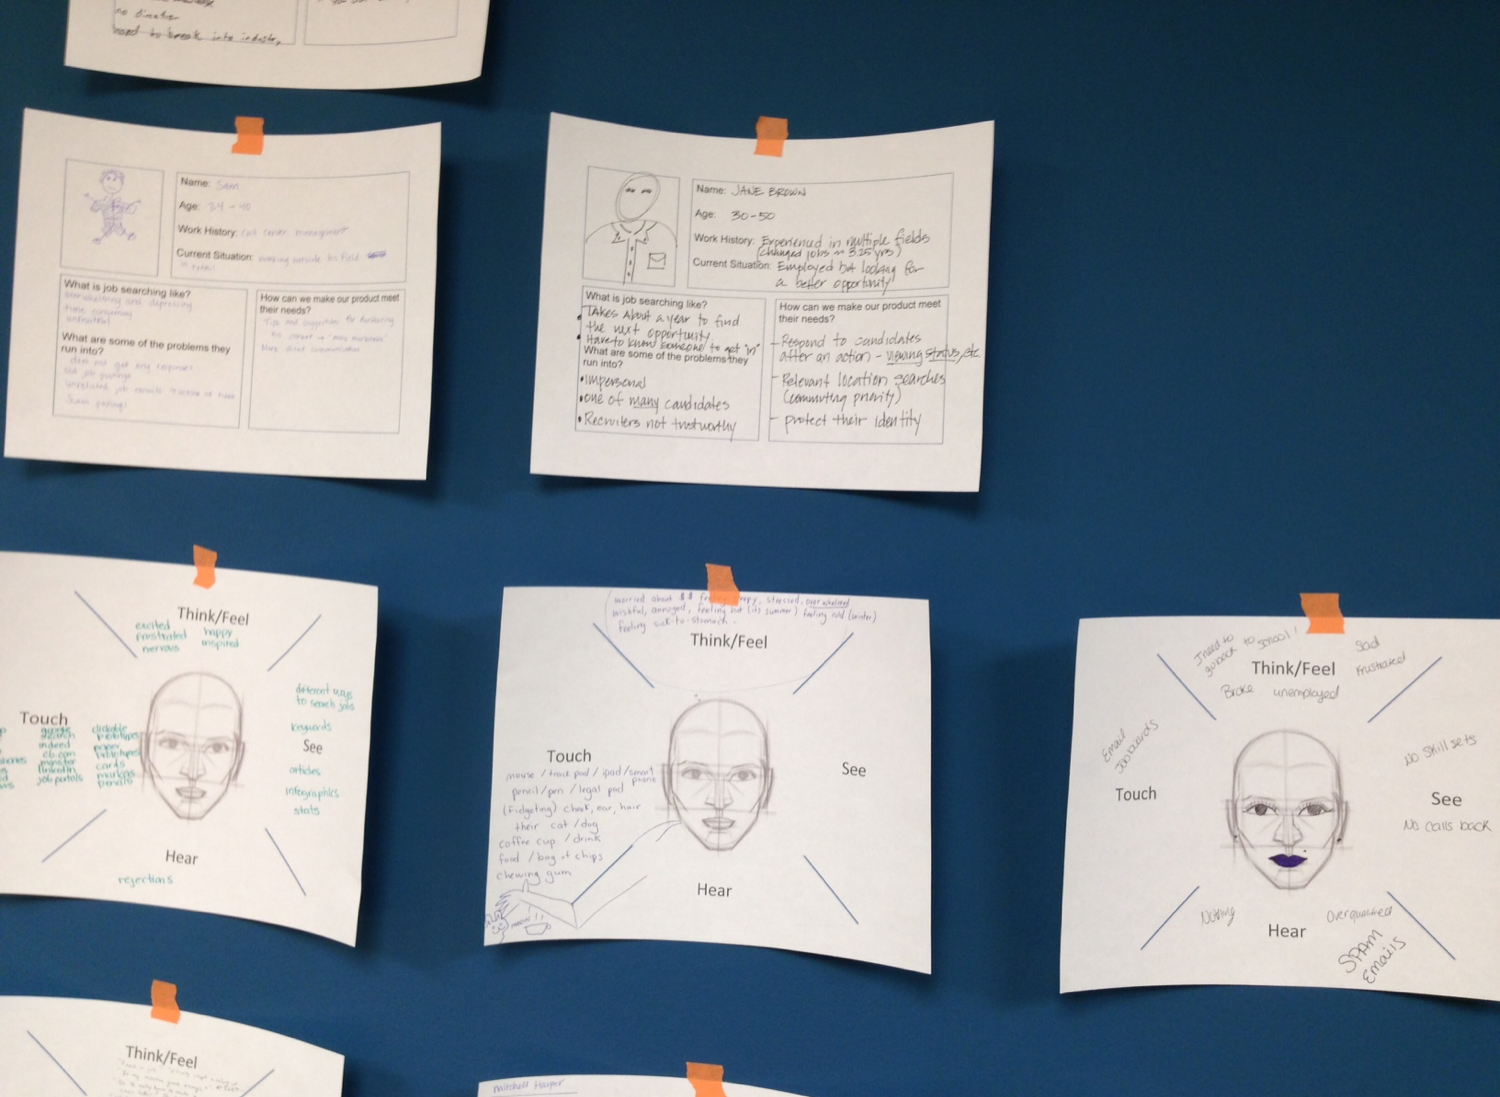 no direction
hard to break into industry
Name: Sam
Age: 34-40
Work History: call center management
Current Situation: working outside his field
What is job searching like?
overwhelming and depressing
time consuming
What are some of the problems they
run into?
does not get any responses
old job postings
Scam postings
How can we make our product meet
their needs?
Tips and suggestions for furthering
his career
More direct communication
Name: JANE BROWN
Age: 30-50
Work History: Experienced in multiple fields
(changed jobs ~ 3.25 yrs)
Current Situation: Employed but looking for
a better opportunity
What is job searching like?
Takes about a year to find
the next opportunity.
Have to know someone to get "in"
What are some of the problems they
run into?
•impersonal
•one of many candidates
•Recruiters not trustworthy
How can we make our product meet
their needs?
- Respond to candidates
after an action - viewing status, etc.
- Relevant location searches
(commuting priority)
- protect their identity
Think/Feel
excited happy
frustrated inspired
nervous
Touch
google search
indeed
cb.com
monster
linkedin
job portals
clickable prototypes
paper prototypes
cards
markers
pencils
different ways
to search jobs
keywords
See
articles
infographics
stats
Hear
rejections
worried about $$ feeling sleepy, stressed, overwhelmed
wishful, annoyed, feeling hot (its summer) feeling cold (winter)
feeling sick-to-stomach
Think/Feel
Touch
mouse / track pad / ipad / smart phone
pencil/pen / legal pad
(fidgeting) cheek, ear, hair
their cat / dog
coffee cup / drink
food / bag of chips
chewing gum
See
Hear
I need to go back to school!
Sad
Think/Feel
Frustrated
Broke unemployed
Email
Job boards
Touch
No Skill sets
See
No calls back
Nothing
Overqualified
Hear
SPAM
Emails
Think/Feel
Mitchell Harper